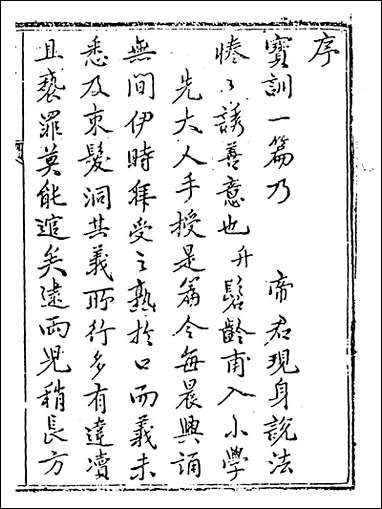 序
寳訓一篇乃　帝君現身說法
惓〻誘善意也升髫齡甫入小學
先大人手授是篇令每晨興誦
無間伊時猶受之熟於口而義未
悉及束髮洞其義所行多有違瀆
且褻罪莫能逭矣逮兩兒稍長方